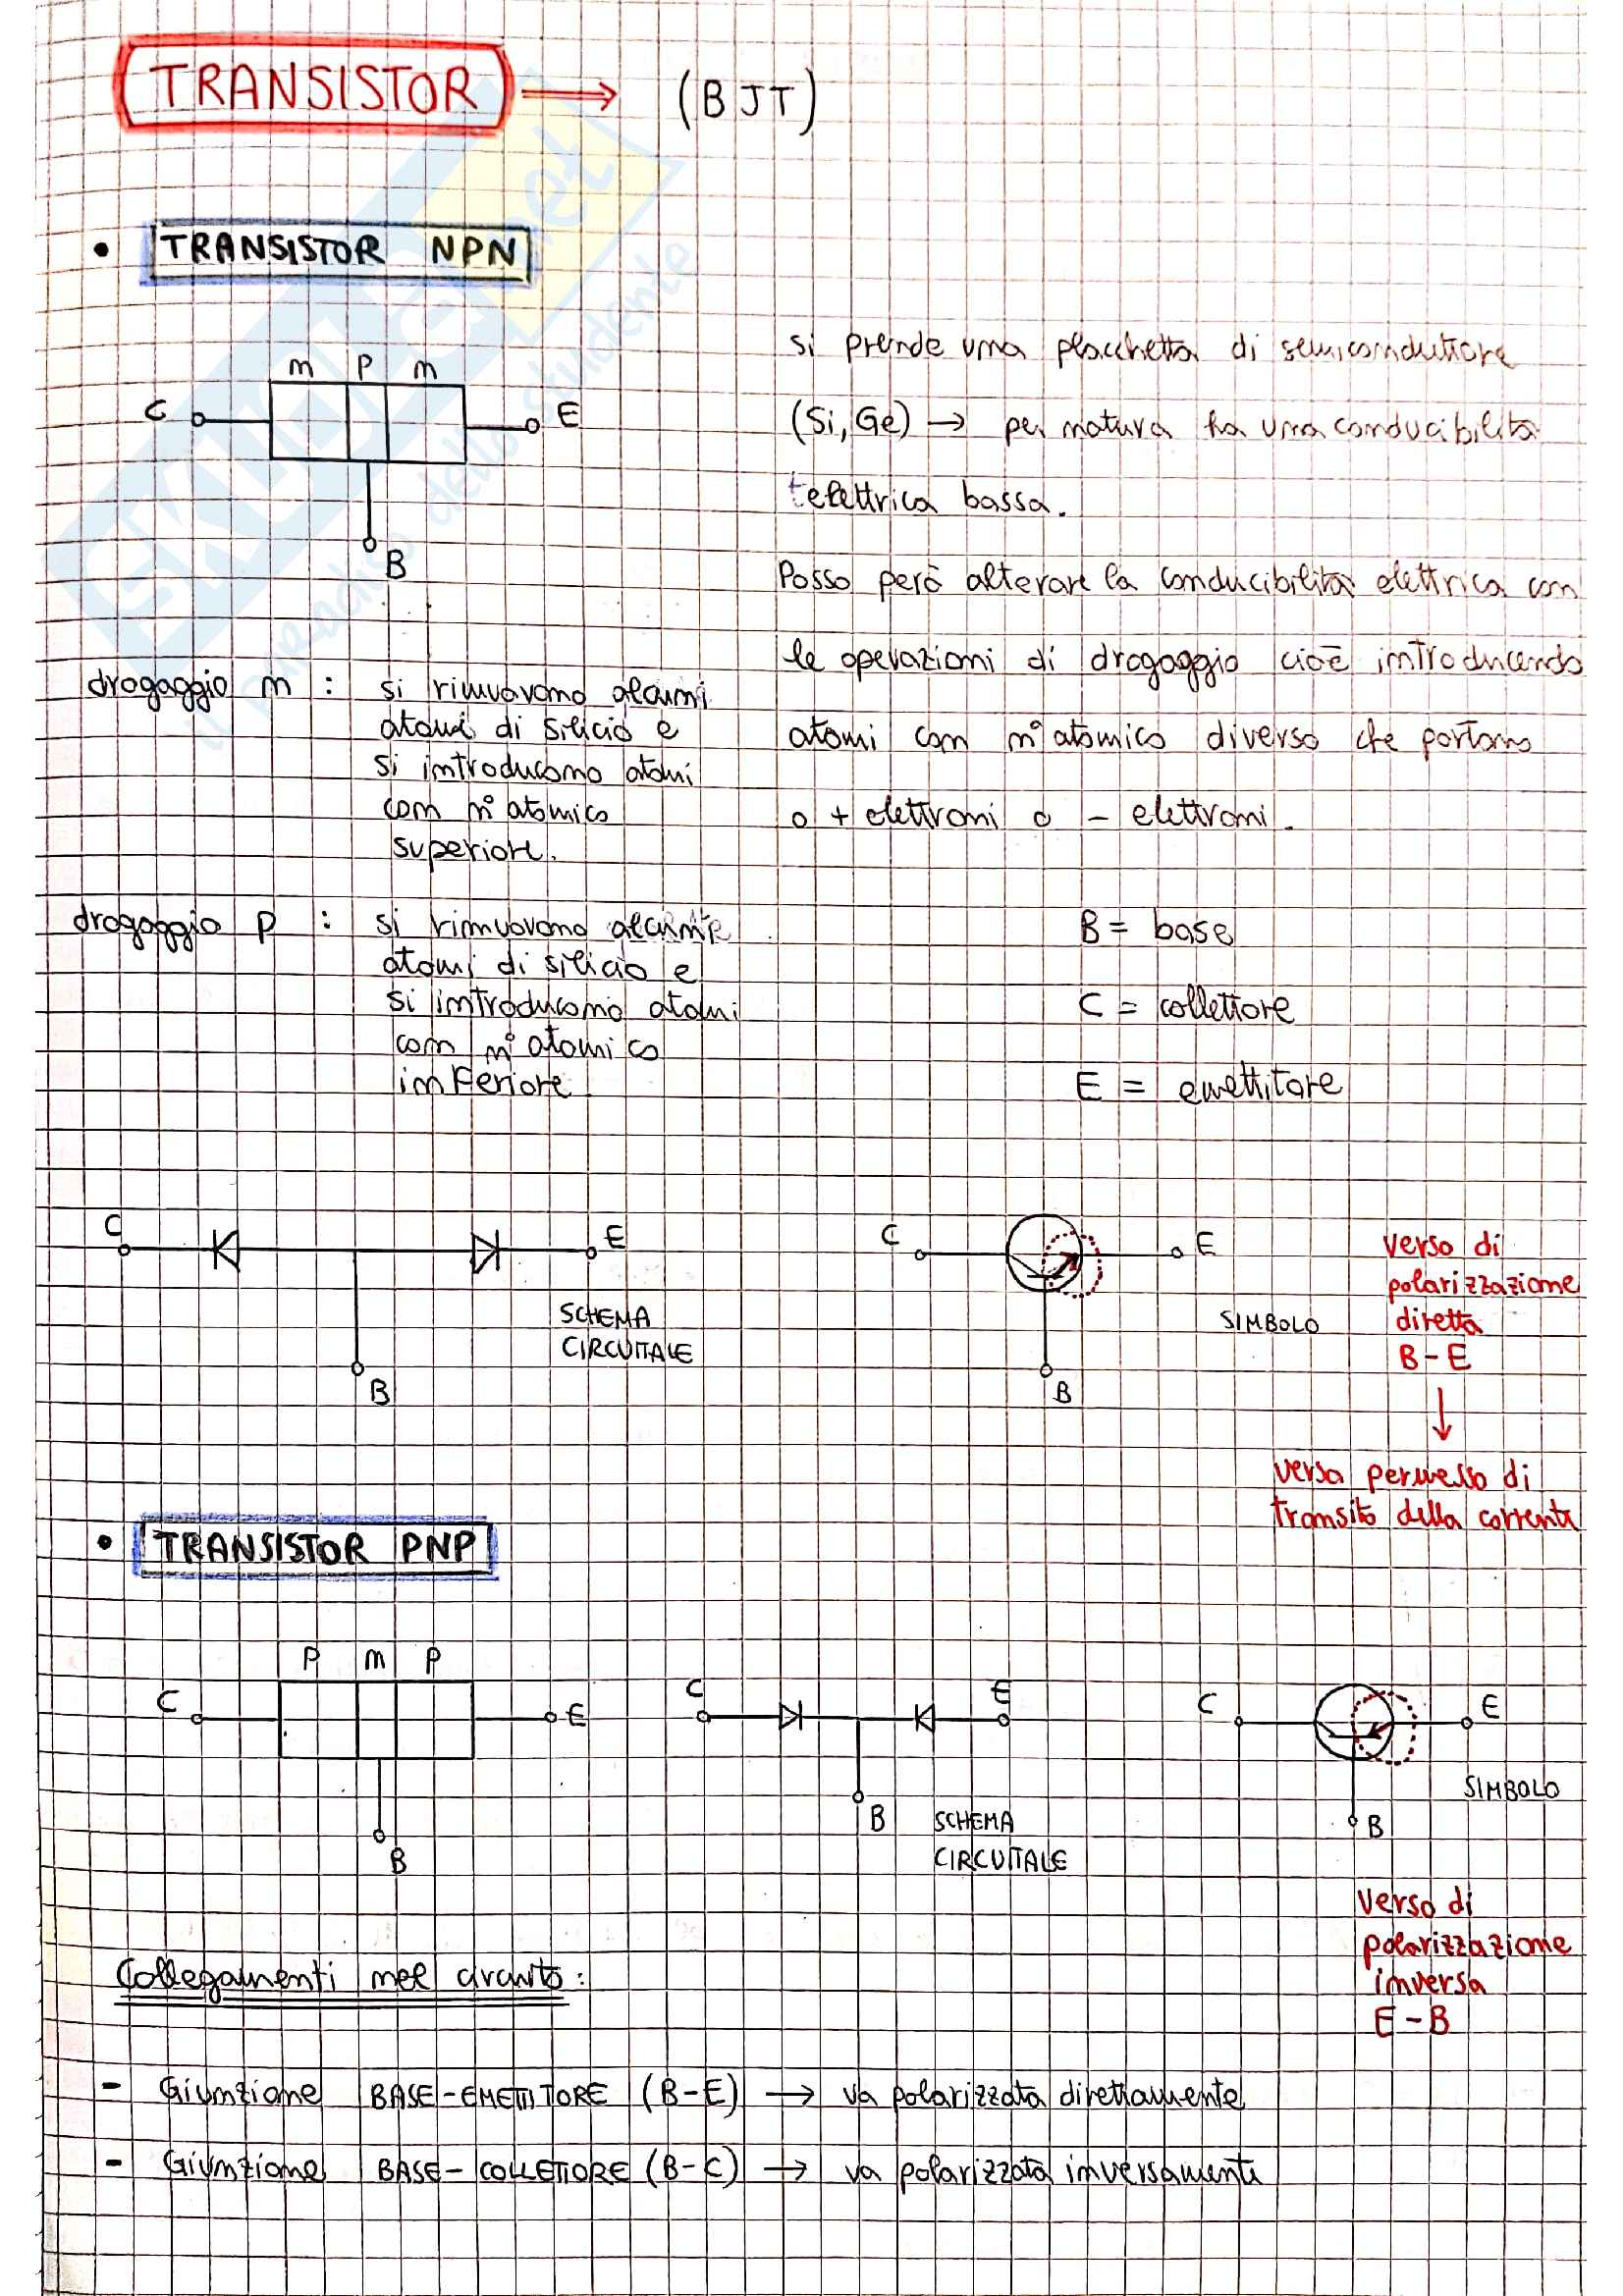 TRANSISTOR → (BJT)
• TRANSISTOR NPN
n P n
C
E
B
si prende una placchetta di semiconduttore
(Si, Ge) → per natura ha una conducibilità
elettrica bassa.
Posso però alterare la conducibilità elettrica con
le operazioni di drogaggio cioè introducendo
atomi con n° atomico diverso che portano
o + elettroni o - elettroni.
drogaggio n : si rimuovono alcuni
atomi di silicio e
si introducono atomi
con n° atomico
superiore.
drogaggio P : si rimuovono
atomi di silicio e
si introducono atomi
con n° atomico
inferiore.
B = base
C = collettore
E = emettitore
C
E
B
SCHEMA
CIRCUITALE
C
E
B
SIMBOLO
verso di
polarizzazione
diretta
B-E
↓
verso permesso di
transito della corrente
• TRANSISTOR PNP
P n P
C
E
B
C
E
B
SCHEMA
CIRCUITALE
C
E
B
SIMBOLO
verso di
polarizzazione
inversa
E-B
Collegamenti nel circuito:
- Giunzione BASE-EMETTITORE (B-E) → va polarizzata direttamente
- Giunzione BASE-COLLETTORE (B-C) → va polarizzata inversamente
skuola.net
il paradiso dello studente